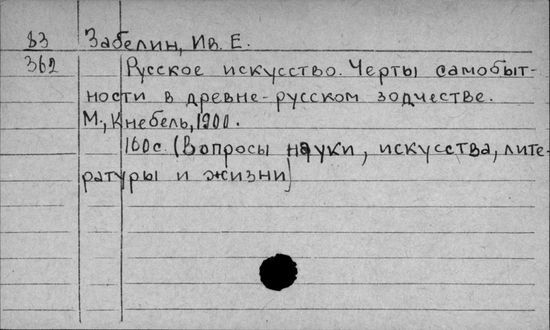 83 Забелин, Ив. Е.
362 Русское искусство. Черты самобыт-
ности в древне-русском зодчестве.
М., Кнебель, 1900.
160 с. (Вопросы науки, искусства, лите-
ратуры и жизни)